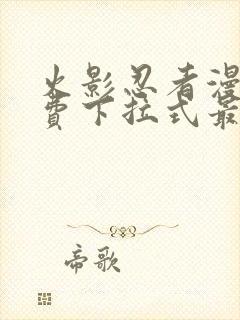 火影忍者漫
费下拉式最
帝歌